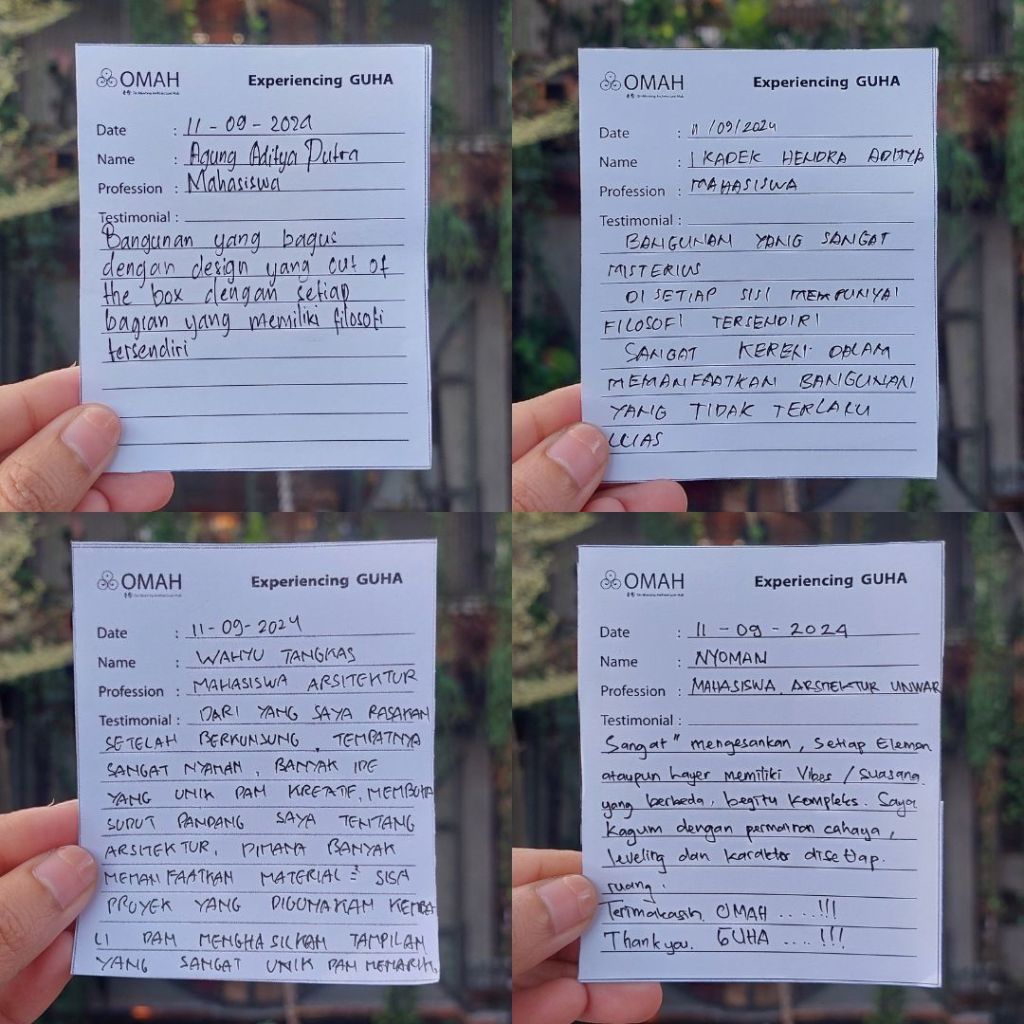 OMAH
Experiencing GUHA
Date : 11 - 09 - 2024
Name : Agung Aditya Putra
Profession : Mahasiswa
Testimonial :
Bangunan yang bagus
dengan design yang out of
the box dengan setiap
bagian yang memiliki filosofi
tersendiri
OMAH
Experiencing GUHA
Date : 11 /09/2024
Name : I KADEK HENDRA ADITYA
Profession : MAHASISWA
Testimonial :
BANGUNAN YANG SANGAT
MISTERIUS
DI SETIAP SISI MEMPUNYAI
FILOSOFI TERSENDIRI
SANGAT KEREN DALAM
MEMANFAATKAN BANGUNAN
YANG TIDAK TERLALU
LUAS
OMAH
Experiencing GUHA
Date : 11-09-2024
Name : WAHYU TANGKAS
Profession : MAHASISWA ARSITEKTUR
Testimonial : DARI YANG SAYA RASAKAN
SETELAH BERKUNJUNG, TEMPATNYA
SANGAT NYAMAN, BANYAK IDE
YANG UNIK DAN KREATIF, MEMBUKA
SUDUT PANDANG SAYA TENTANG
ARSITEKTUR, DIMANA BANYAK
MEMANFAATKAN MATERIAL² SISA
PROYEK YANG DIGUNAKAN KEMBA
LI DAN MENGHASILKAN TAMPILAN
YANG SANGAT UNIK DAN MENARIK
OMAH
Experiencing GUHA
Date : 11 - 09 - 2024
Name : NYOMAN
Profession : MAHASISWA ARSITEKTUR UNWAR
Testimonial :
Sangat" mengesankan, Setiap Elemen
ataupun Layer memiliki Vibes / suasana
yang berbeda, begitu kompleks. Saya
kagum dengan permainan cahaya,
leveling dan karakter disetiap
ruang.
Terimakasih OMAH ....!!!
Thankyou. GUHA ....!!!